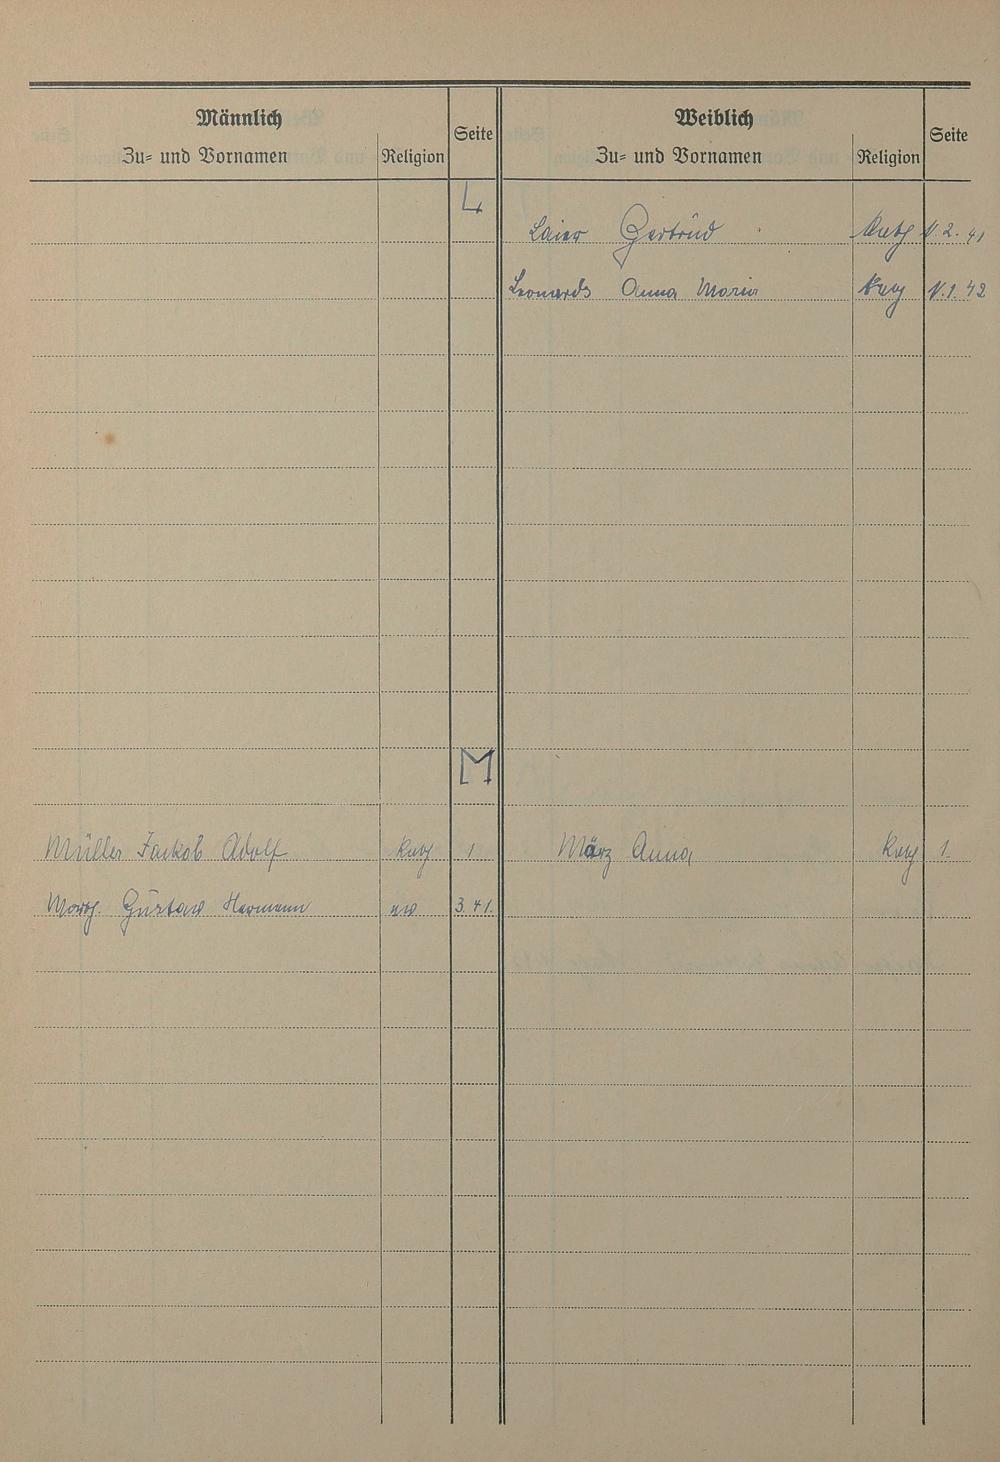 Männlich Weiblich
Zu= und Vornamen Religion Seite Zu= und Vornamen Religion Seite
L
Laier Gertrud Kath N. 2. 41
Leonards Anna Maria N. 1. 42
M
Müller Jackob Adolf Kath 1 März Anna Kath 1.
Gustav Hermann ev 3. 41.